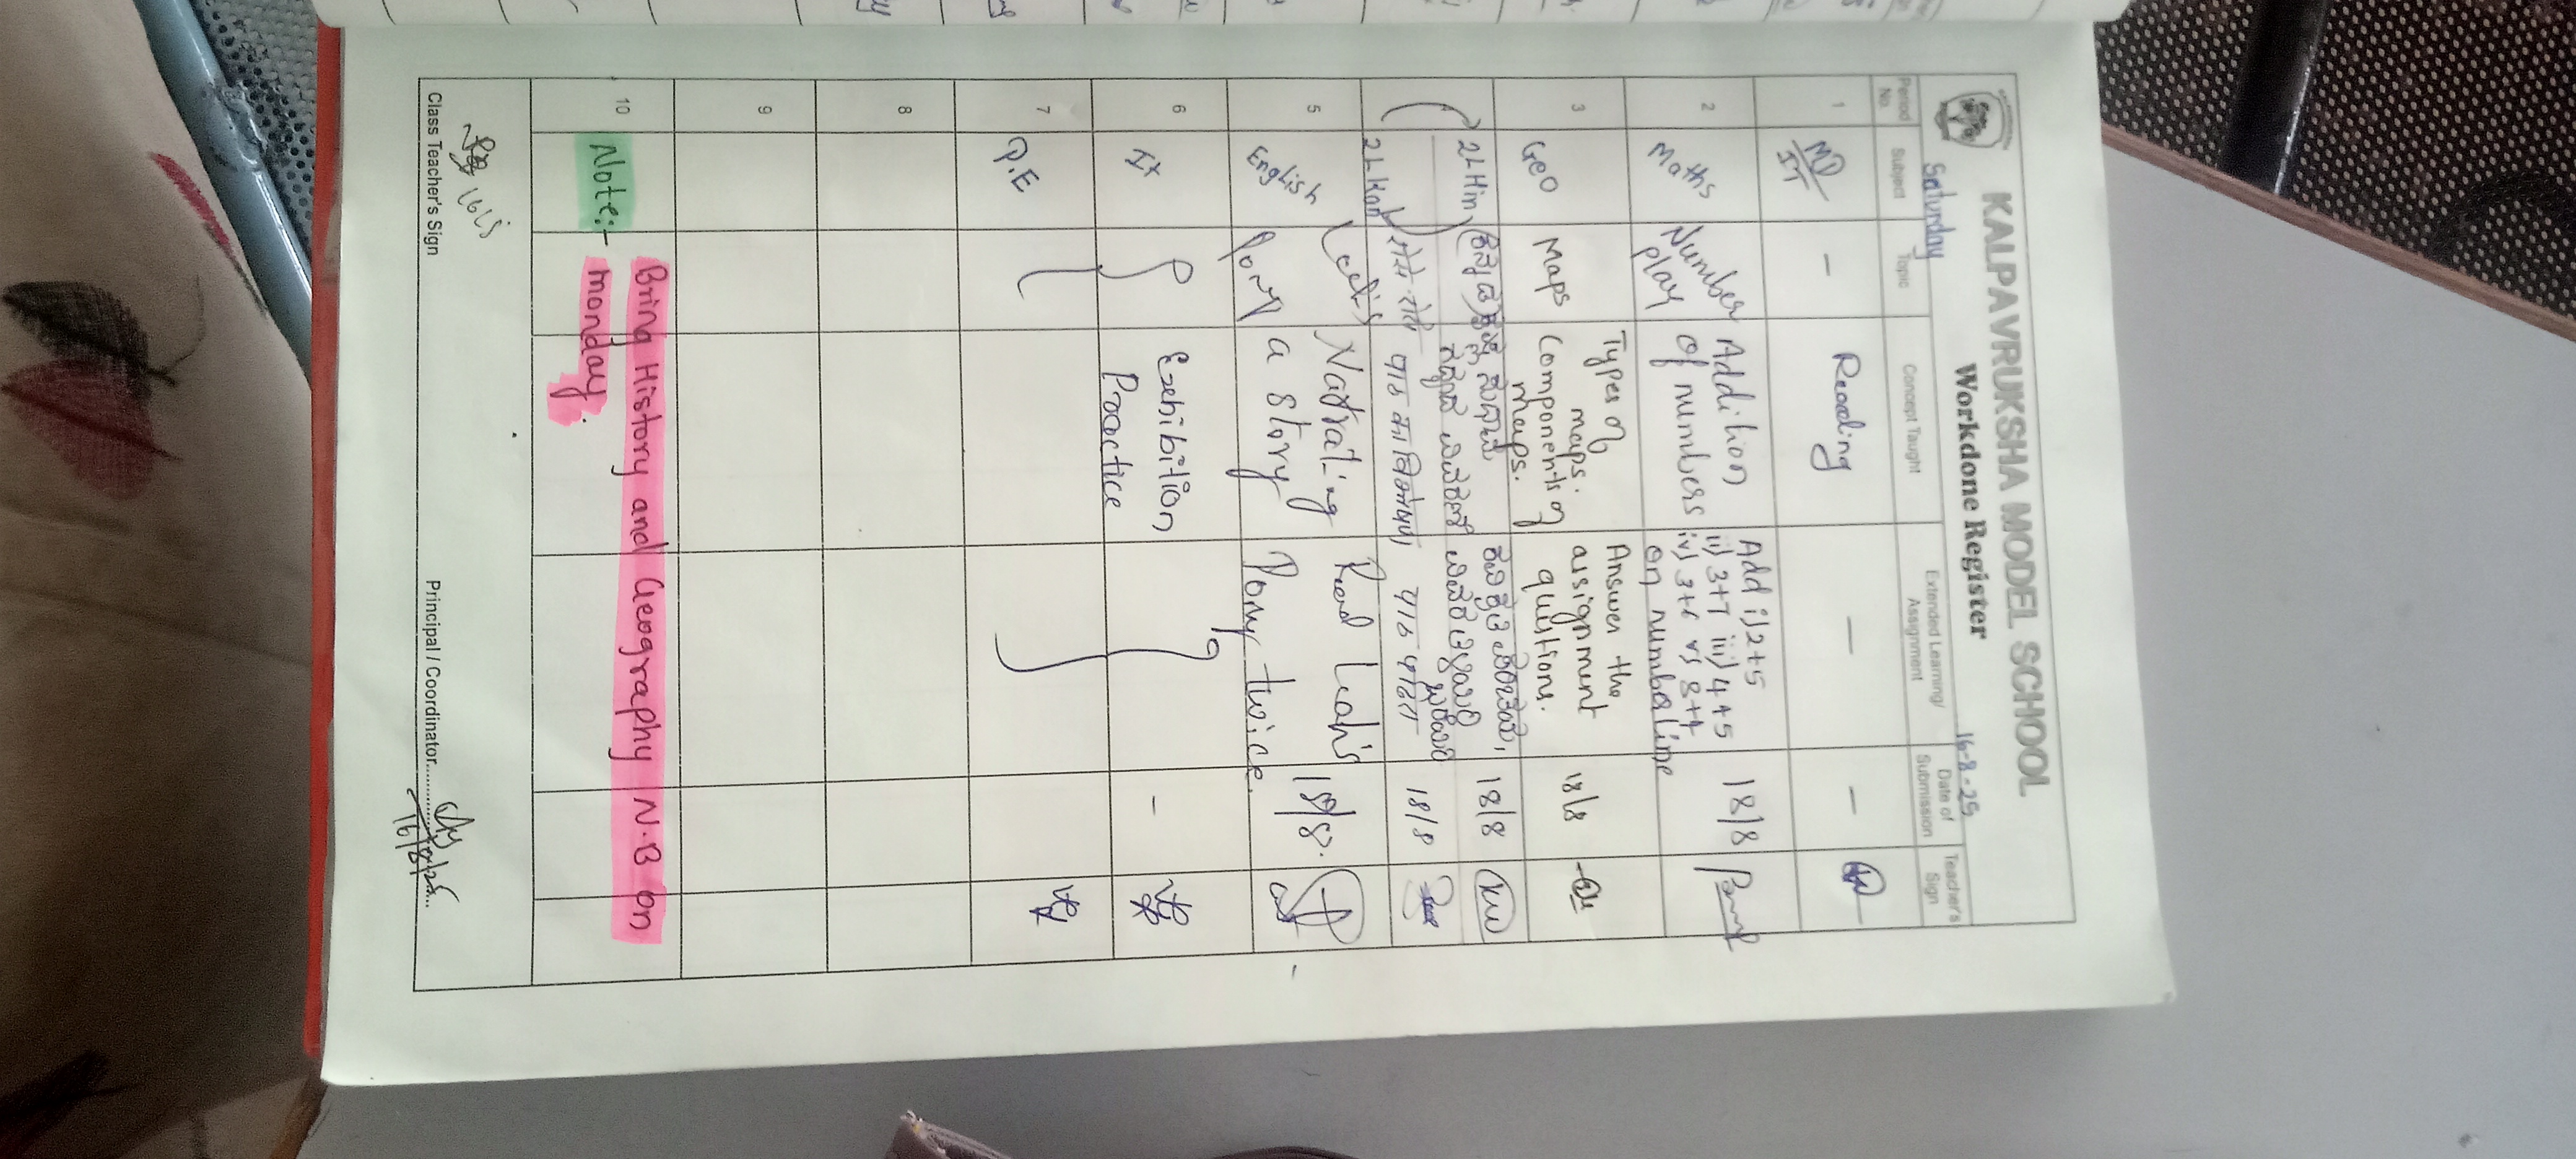 KALPAVRUKSHA MODEL SCHOOL
Workdone Register
Saturday
16-8-25
Period No.
Subject
Topic
Concept Taught
Extended Learning/ Assignment
Date of Submission
Teacher's Sign
1
IT
-
Reading
-
-
2
Maths
Number
play
Addition
of numbers
Add i) 2+5
ii) 3+7 iii) 4+5
iv) 3+6 v) 8+4
on numberline
18/8
3
Geo
Maps
Types of
maps.
Components of
maps.
Answer the
assignment
questions.
18/8
2L Hin
18/8
2L Kan
पाठ का
पाठ
18/8
5
English
Pony
Narrating
a story
Read Leah's
Pony twice.
18/8.
6
IT
Exhibition
Practice
-
7
P.E
8
9
10
Note:-
Bring History and Geography N.B on
monday.
Class Teacher's Sign
Principal / Coordinator
16/8/25